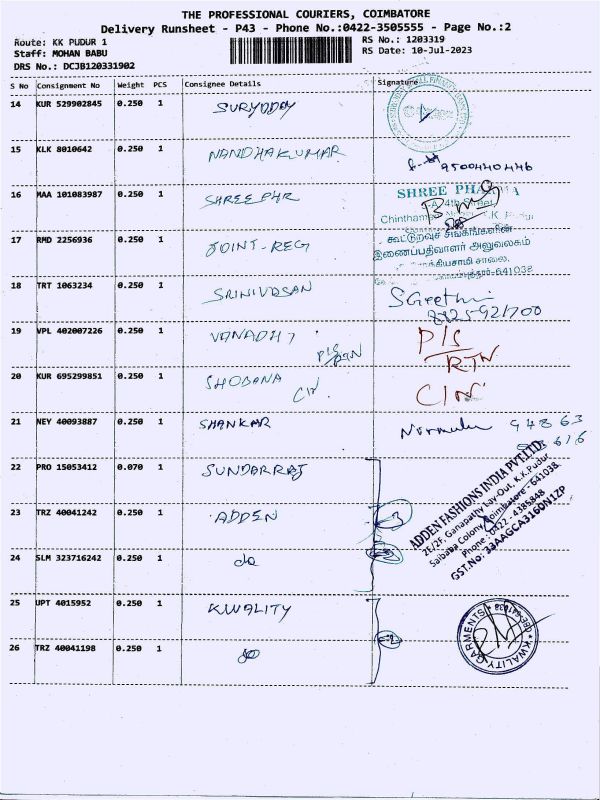 THE PROFESSIONAL COURIERS, COIMBATORE
Delivery Runsheet - P43 - Phone No.:0422-3505555 - Page No.:2
Route: KK PUDUR 1
RS No.: 1203319
Staff: MOHAN BABU
RS Date: 10-Jul-2023
DRS No.: DCJB120331902
S No Consignment No Weight PCS Consignee Details Signature
14 KUR 529902845 0.250 1 SURYODAY
15 KLK 8010642 0.250 1 NANDHAKUMAR 9500440446
16 MAA 101083987 0.250 1 SHREE PHR
SHREE PHARMA
4th Street,
K.K. Pudur
17 RMD 2256936 0.250 1 JOINT-REG
கூட்டுறவுச் சங்கங்களின்
இணைப்பதிவாளர் அலுவலகம்
சாலை,
641038
18 TRT 1063234 0.250 1 SRINIVASAN SGeethi
8825-921700
19 VPL 402007226 0.250 1 VANADHI P/S RTN
P/S
RTN
20 KUR 695299851 0.250 1 SHOBANA C/N C/N
21 NEY 40093887 0.250 1 SHANKAR 94863
616
22 PRO 15053412 0.070 1 SUNDARRAJ
23 TRZ 40041242 0.250 1 ADDEN
24 SLM 323716242 0.250 1 do
ADDEN FASHIONS INDIA PVT.LTD.
2E/2F, Ganapathy Lay-Out, K.K.Pudur
Saibaba Colony, Coimbatore - 641038.
Phone : 0422 - 4385848
GST.No: 33AAGCA3160N1ZP
25 UPT 4015952 0.250 1 KWALITY
KWALITY GARMENTS * CBE-641038 *
26 TRZ 40041198 0.250 1 do